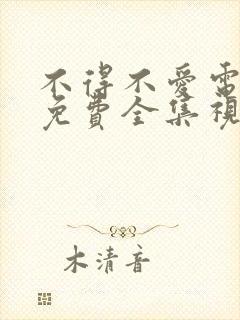 不得不愛電
免費全集視
木清音